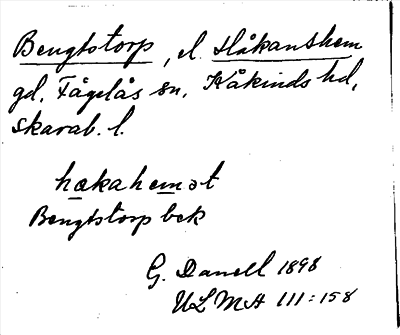 Bengtstorp, el. Håkanshem
gd, Fågelås sn, Kåkinds hd,
Skarab. l.
hakahemot
Bengtstorp bek
G. Danell 1898
ULMA 111:158